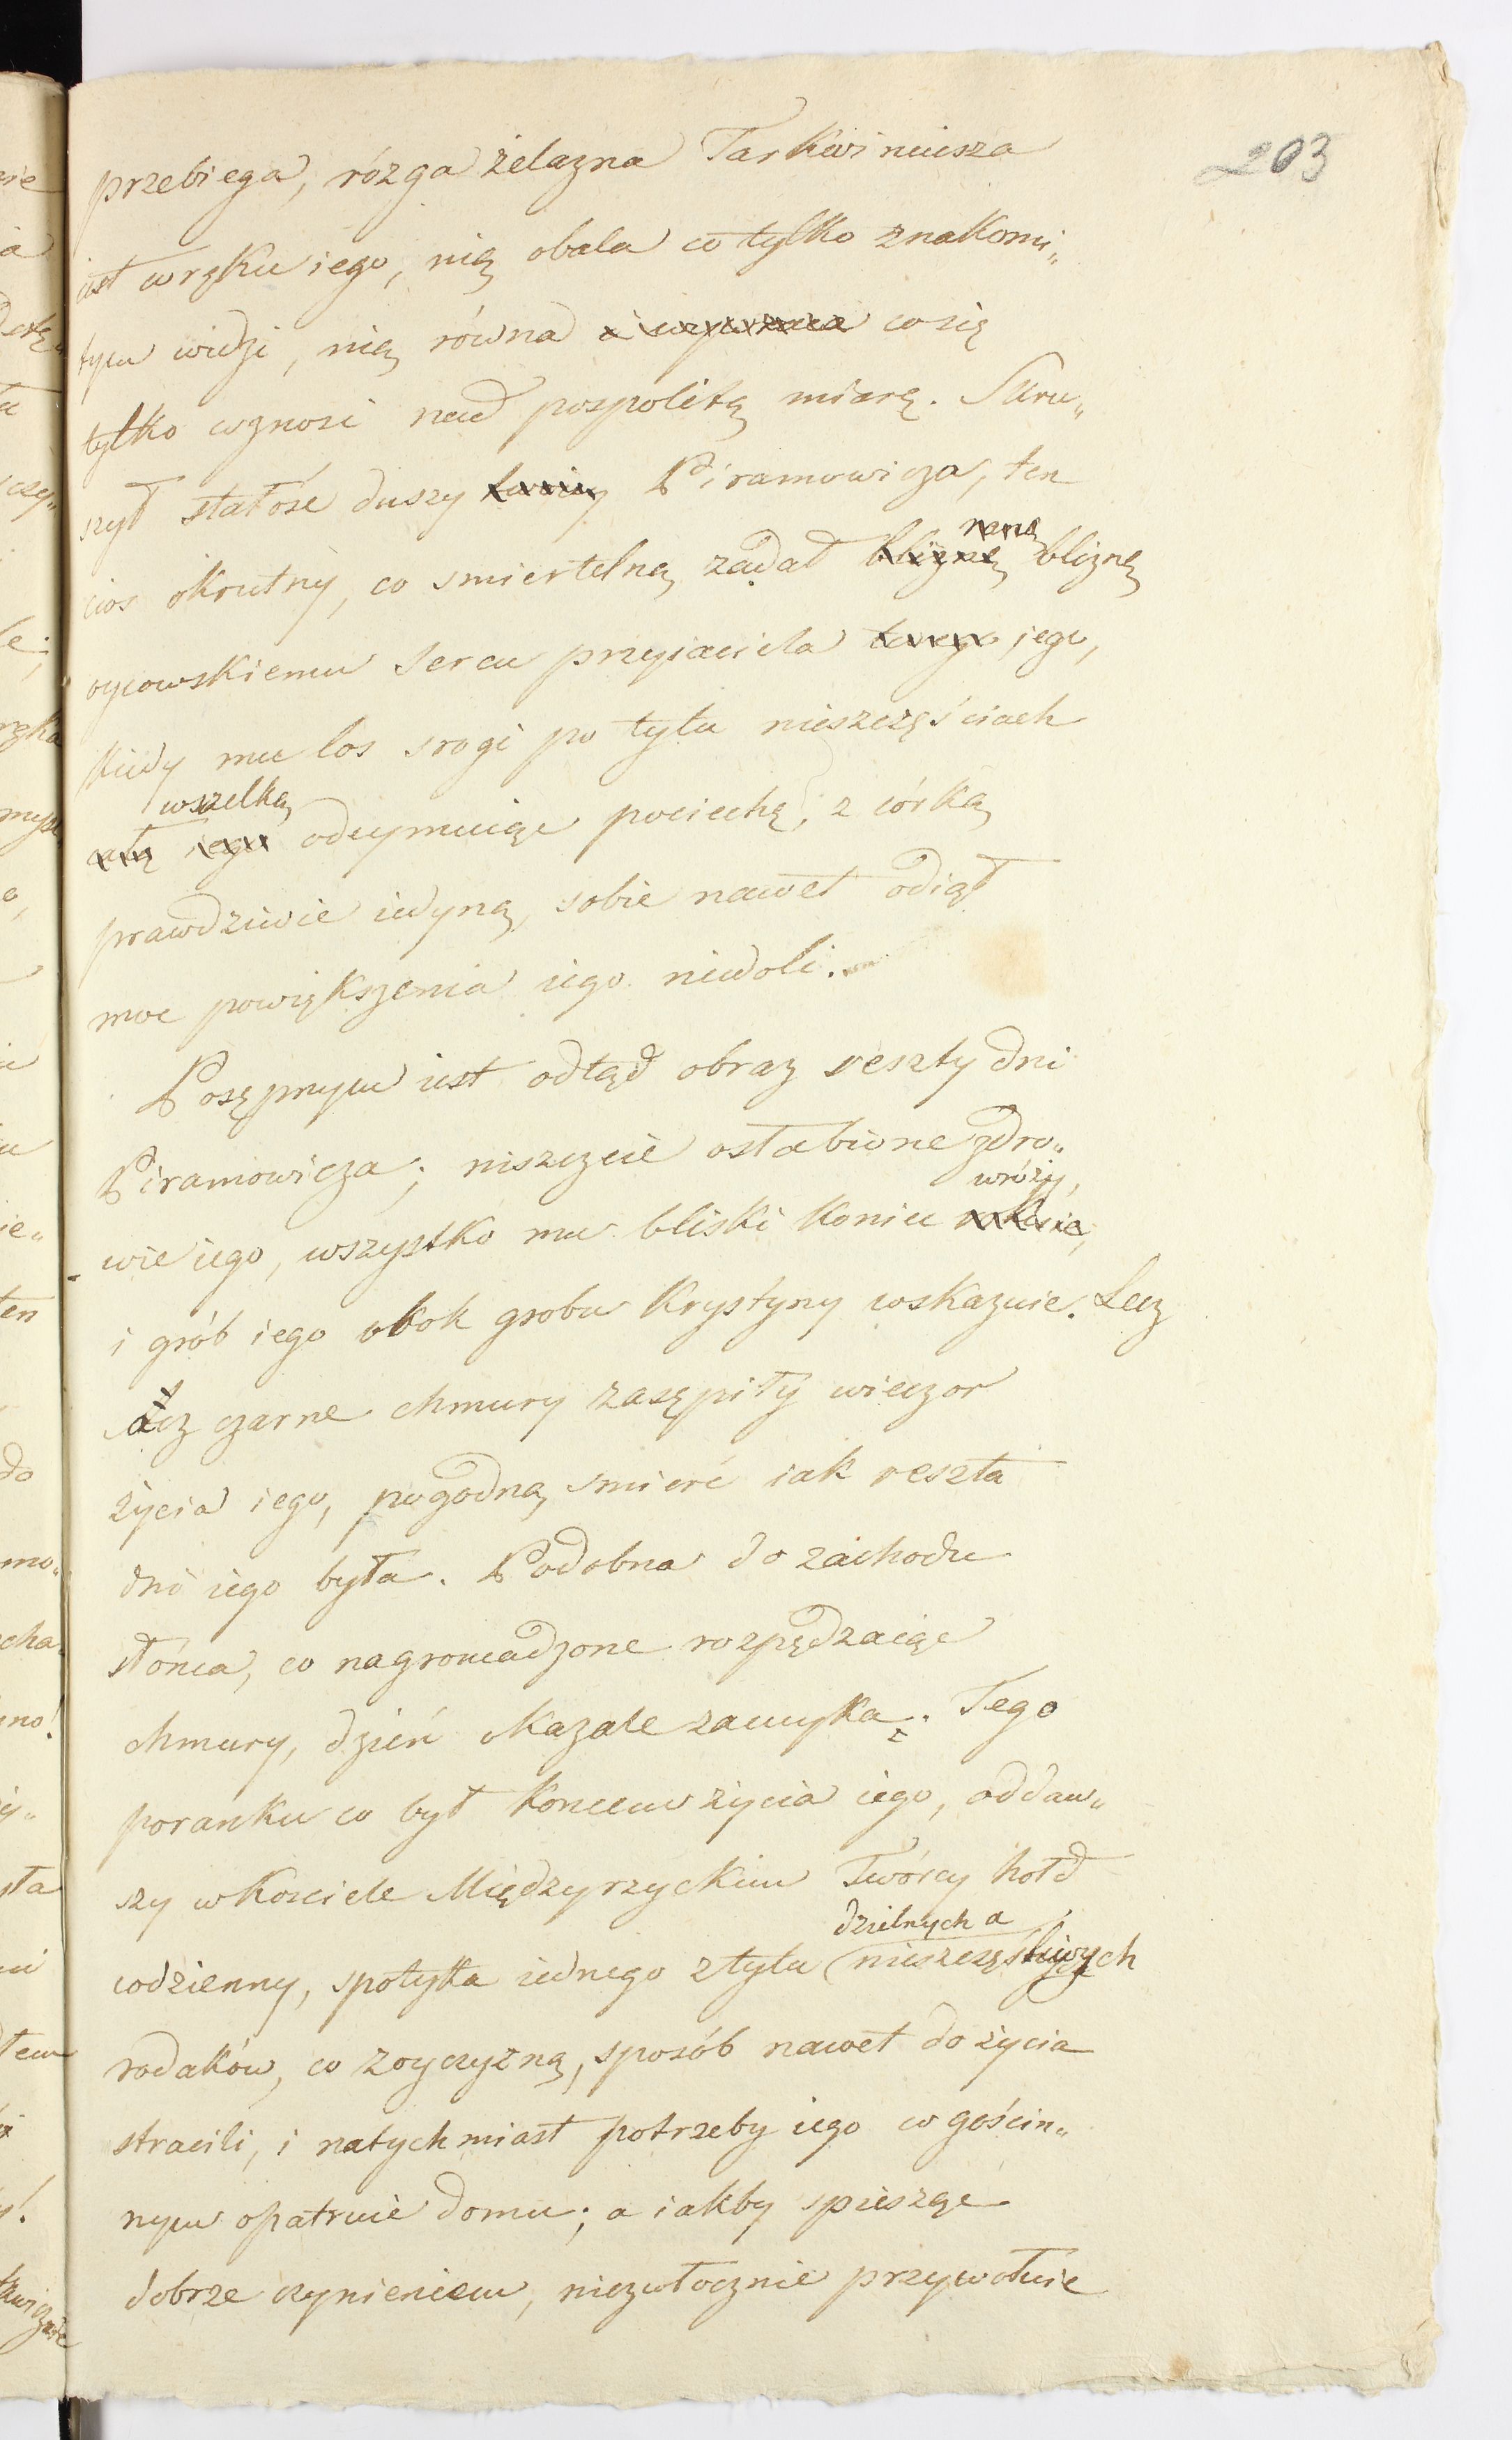 203
przebiega, rózga żelazna Tarkwiniusza
iest wręku iego, nią obala co tylko znakomi„
tym widzi, nią równa cosię
tylko wznosi nad pospolitą miarę. Skru„
szył stałość duszy Piramowicza, ten
cios okrutny, co smiertelną zadał bliznę raną bliznę
oycowskiemu sercu przyiaciela jego,
kiedy mu los srogi po tylu nieszczęściach
wszelką
całą iego odeymuiąc pociechę, z córką
prawdziwie iedyną, sobie nawet odiął
moc powiększenia iego niedoli.
Posępnym iest odtąd obraz reszty dni
Piramowicza; niszczeie osłabione zdro„
wróży,
wie iego, wszystko mu bliski koniec
i grób iego obok grobu Krystyny wskazuie. Lecz
acz czarne chmury zasępiły wieczor
życia iego, pogodną smierć iak reszta
dni iego była. Podobna do zachodu
słońca, co nagromadzone rozpędzaiąc
chmury, dzień okazale zamyka. Tego
poranku co był końcem życia iego, oddaw„
szy w kościele Międzyrzyckim Twórcy hołd
dzielnych a
codzienny, spotyka iednego ztylu nieszczęśliwych
rodaków, co zoyczyzną, sposób nawet do życia
stracili, i natychmiast potrzeby iego w gościn„
nym opatruie domu; a iakby spiesząc
dobrze czynieniem, niezwłocznie przywołuie